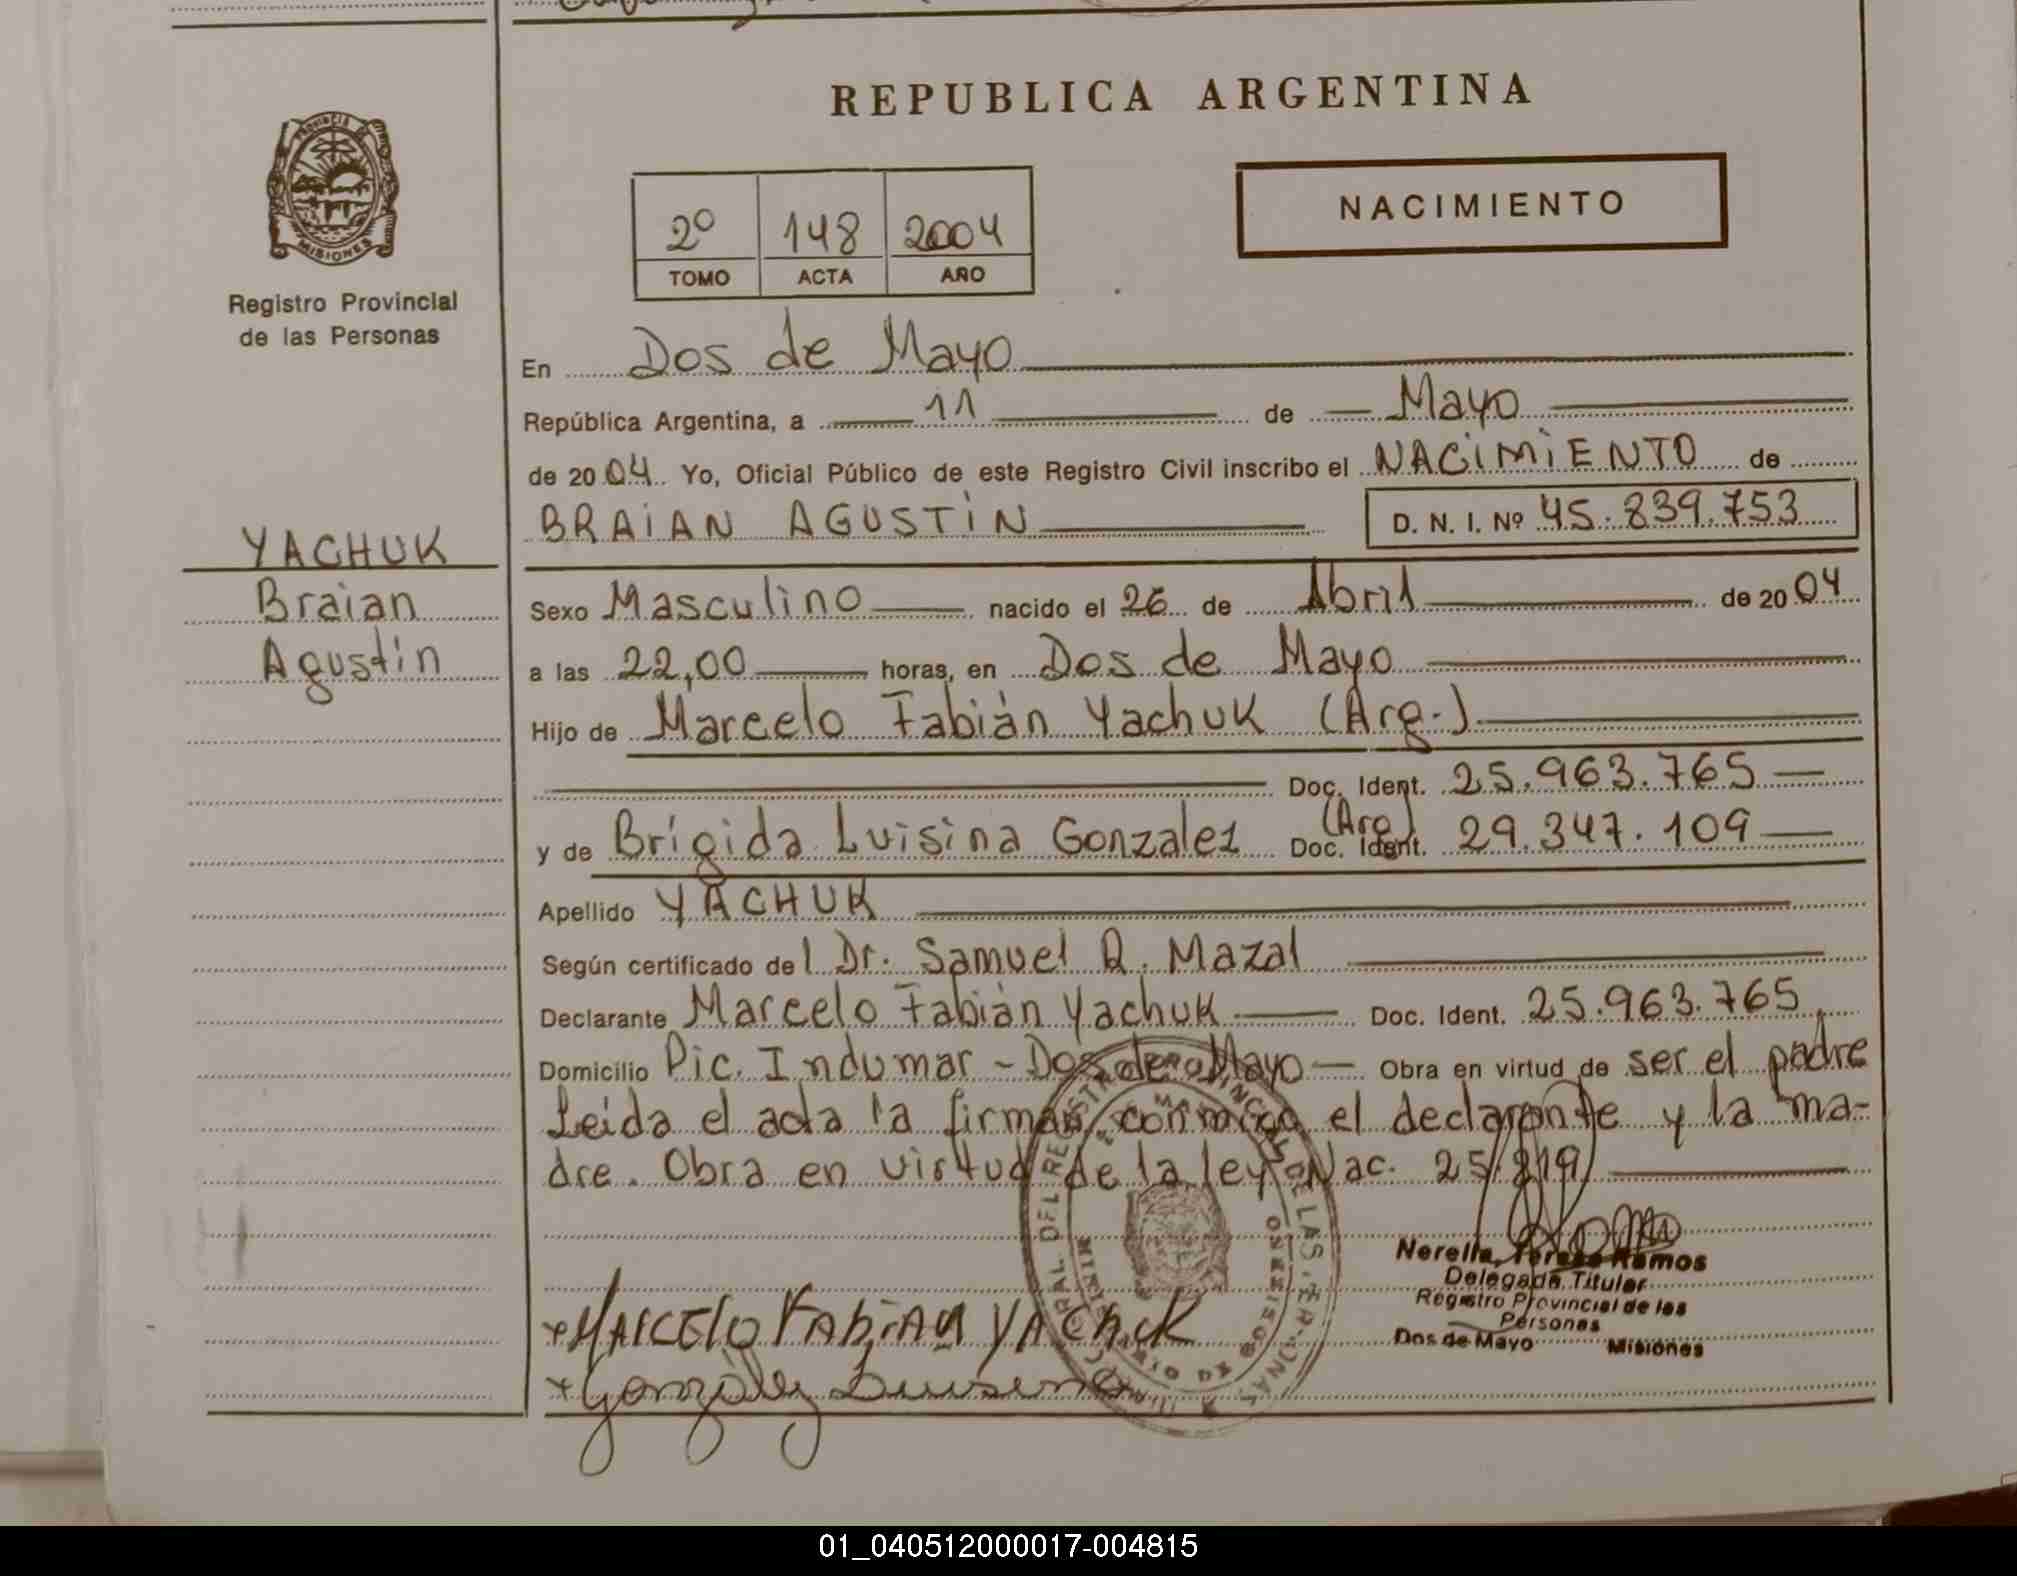 REPUBLICA ARGENTINA
PROVINCIA DE
MISIONES
Registro Provincial
de las Personas
NACIMIENTO
2º 148 2004
TOMO ACTA AÑO
En Dos de Mayo
República Argentina, a 11 de Mayo
de 2004 Yo, Oficial Público de este Registro Civil inscribo el NACIMIENTO de
BRAIAN AGUSTIN D. N. I. Nº 45.839.753
YACHUK
Braian
Agustin
Sexo Masculino nacido el 26 de Abril de 2004
a las 22,00 horas, en Dos de Mayo
Hijo de Marcelo Fabián Yachuk (Arg.)
Doc. Ident. 25.963.765
y de Brígida Luisina Gonzalez (Arg) Doc. Ident. 29.347.109
Apellido YACHUK
Según certificado del Dr. Samuel R. Mazal
Declarante Marcelo Fabián Yachuk Doc. Ident. 25.963.765
Domicilio Pic. Indumar - Dos de Mayo Obra en virtud de ser el padre
Leída el acta la firman conmigo el declarante y la ma-
dre. Obra en virtud de la ley Nac. 25.819
Nerella Teresa Ramos
Delegada Titular
Registro Provincial de las
Personas
Dos de Mayo Misiones
+MARCELO FABIAN YACHUK
+Gonzalez Luisina
01_040512000017-004815